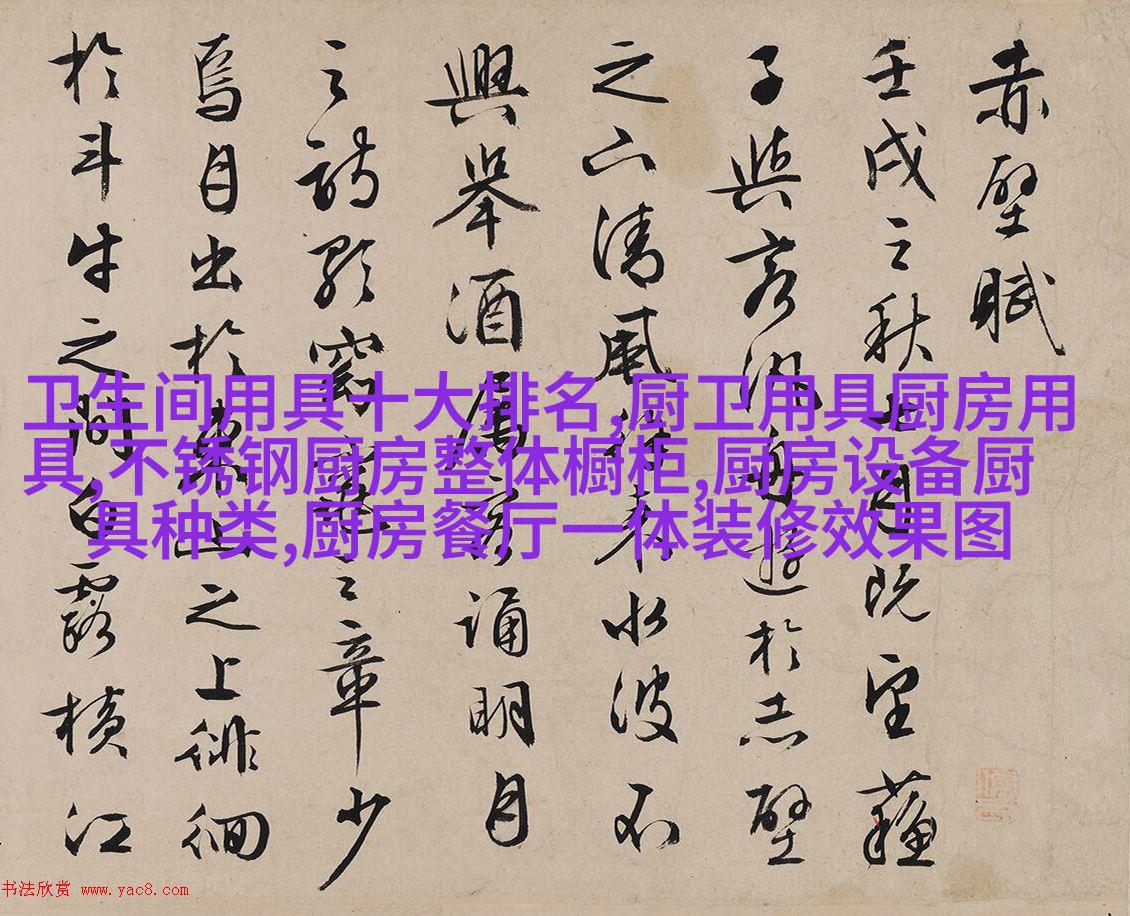 赤壁賦
壬戌之秋七月既望蘇
子與客汎舟遊於赤壁
之下清風徐來水波不
興舉酒屬客誦明月
之詩歌窈窕之章少
焉月出於東山之上徘徊
於斗牛之間白露橫江
卫生间用具十大排名,厨卫用具厨房用
具,不锈钢厨房整体橱柜,厨房设备厨
具种类,厨房餐厅一体装修效果图
书法欣赏 www.yac8.com